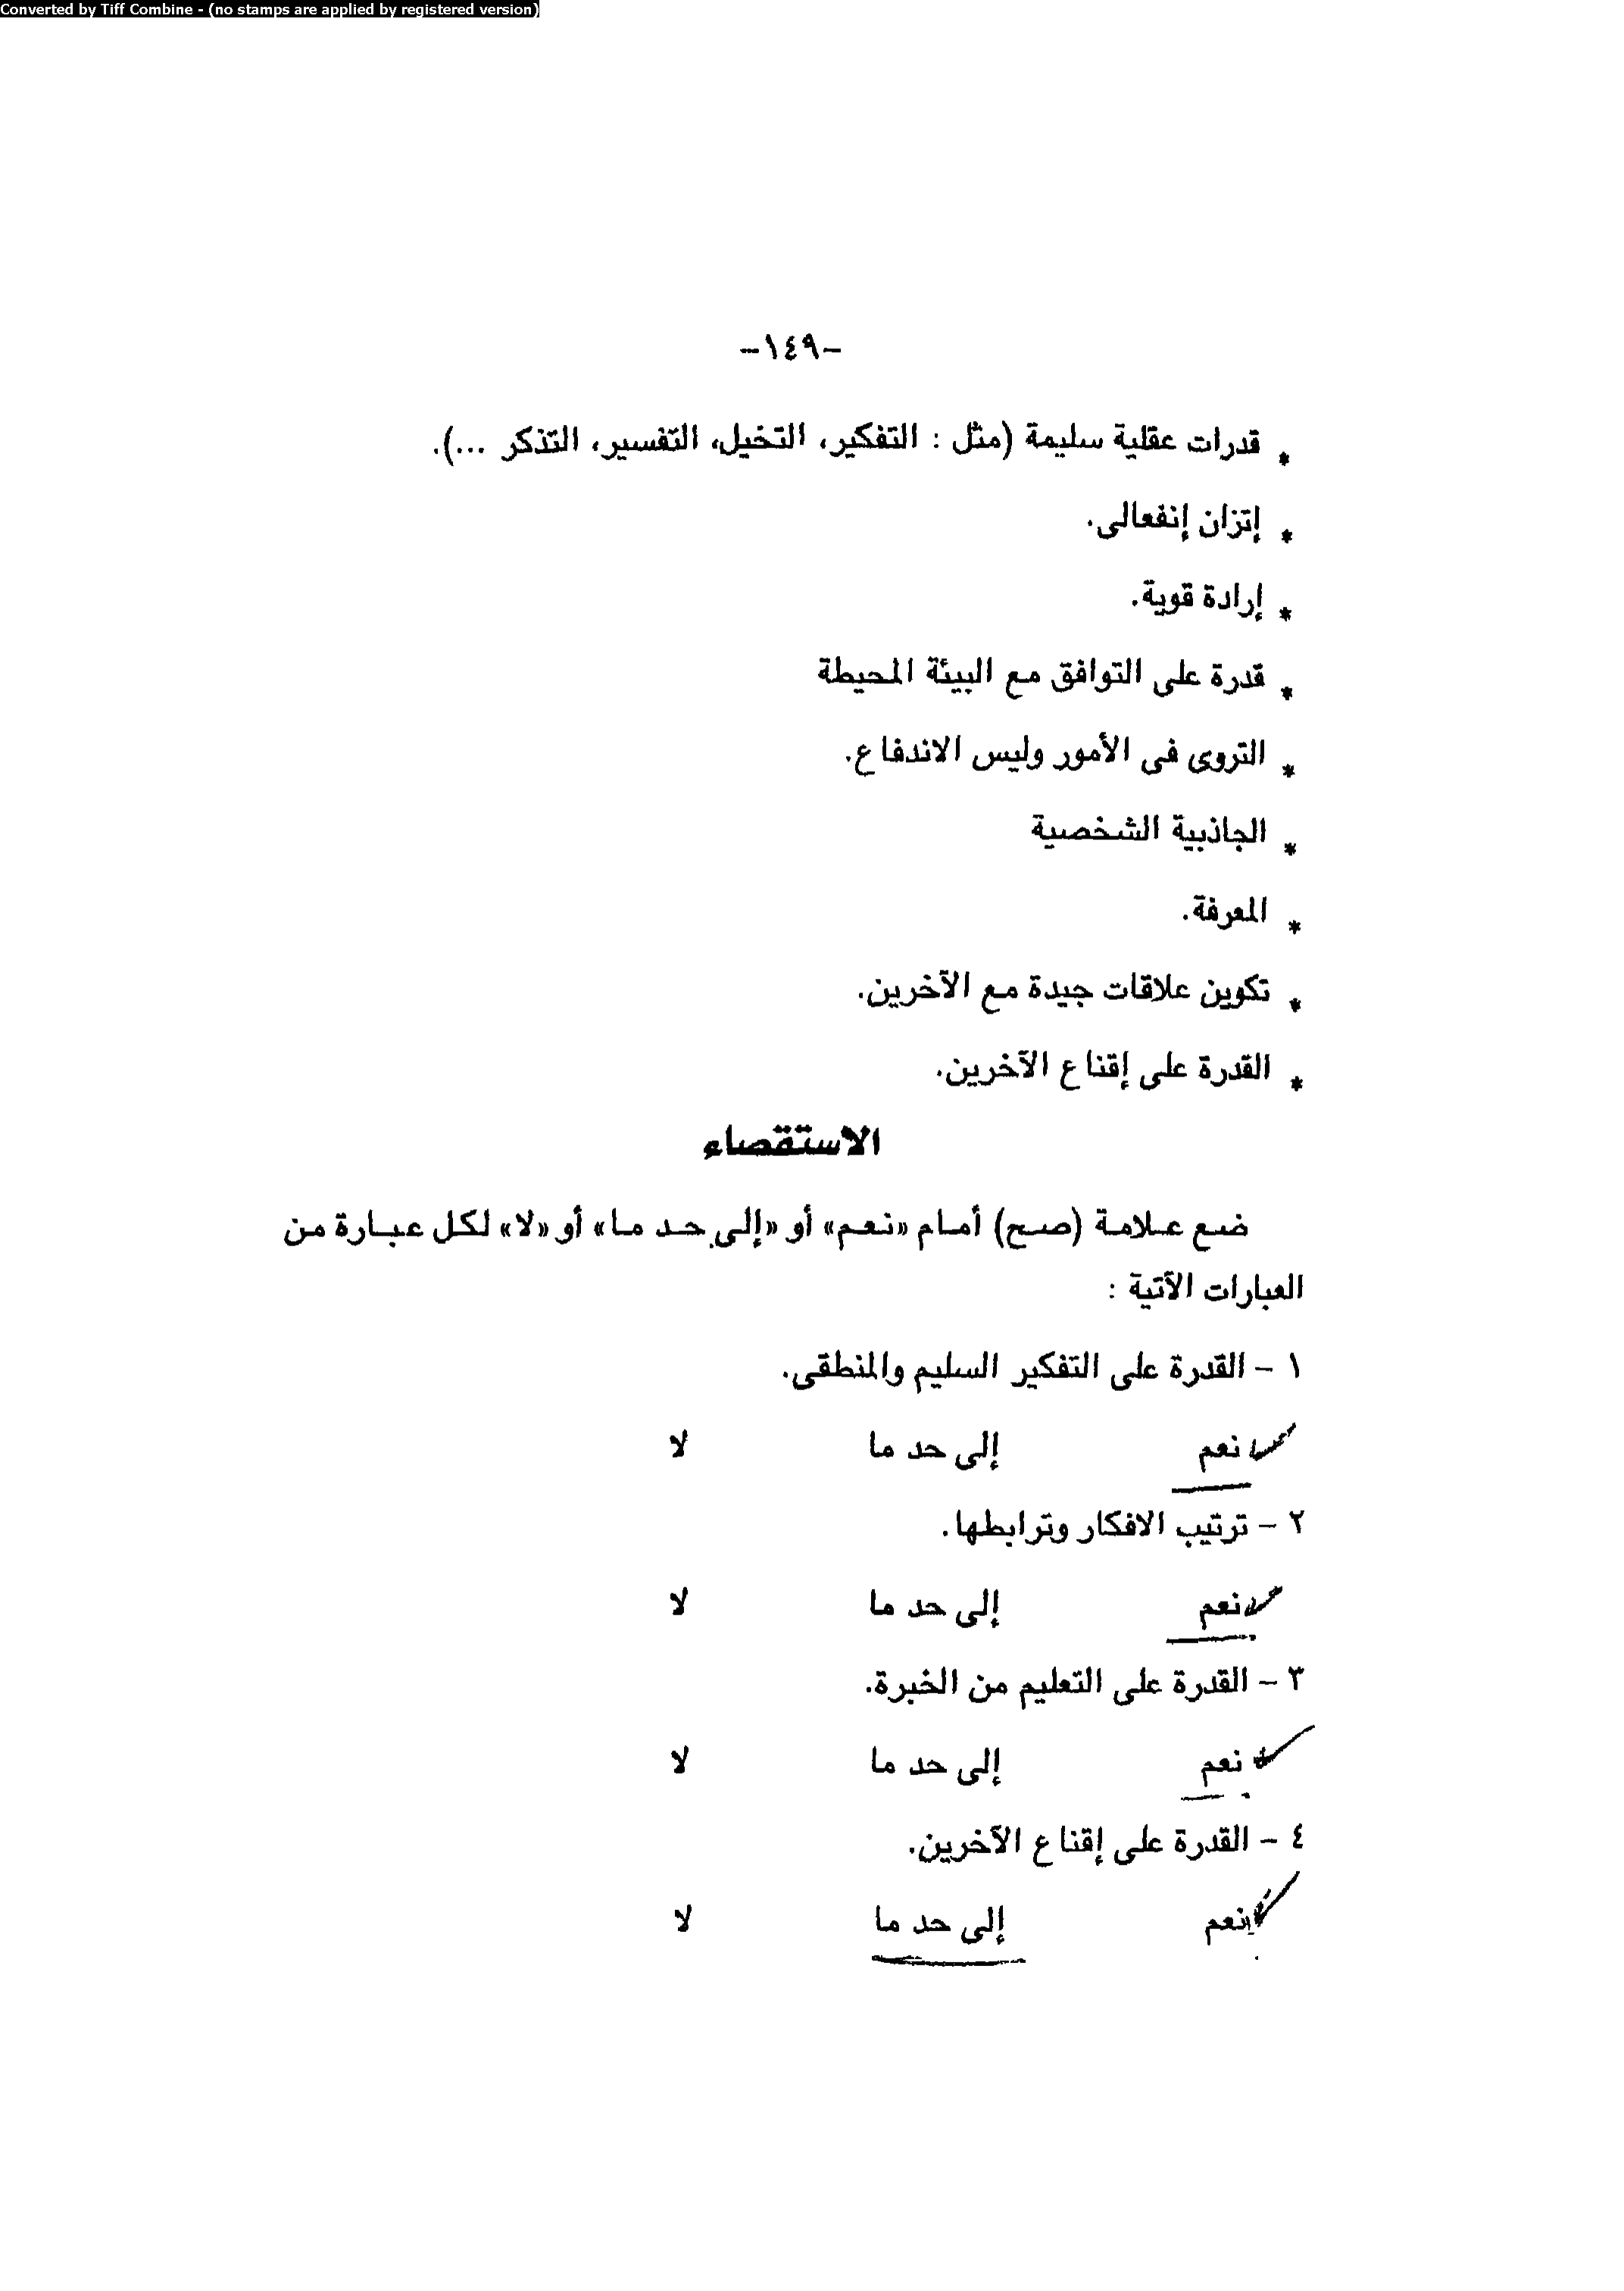 Converted by Tiff Combine - (no stamps are applied by registered version)
-١٤٩-
* قدرات عقلية سليمة (مثل : التفكير، التخيل، التفسير، التذكر ...).
* إتزان إنفعالى.
* إرادة قوية.
* قدرة على التوافق مع البيئة المحيطة
* التروى فى الأمور وليس الاندفاع.
* الجاذبية الشخصية
* المعرفة.
* تكوين علاقات جيدة مع الآخرين.
* القدرة على إقناع الآخرين.
الاستقصاء
ضع علامة (صح) أمام «نعم» أو «إلى حد ما» أو «لا» لكل عبارة من
العبارات الآتية :
١ - القدرة على التفكير السليم والمنطقى.
نعم إلى حد ما لا
٢ - ترتيب الافكار وترابطها.
نعم إلى حد ما لا
٣ - القدرة على التعليم من الخبرة.
نعم إلى حد ما لا
٤ - القدرة على إقناع الآخرين.
نعم إلى حد ما لا